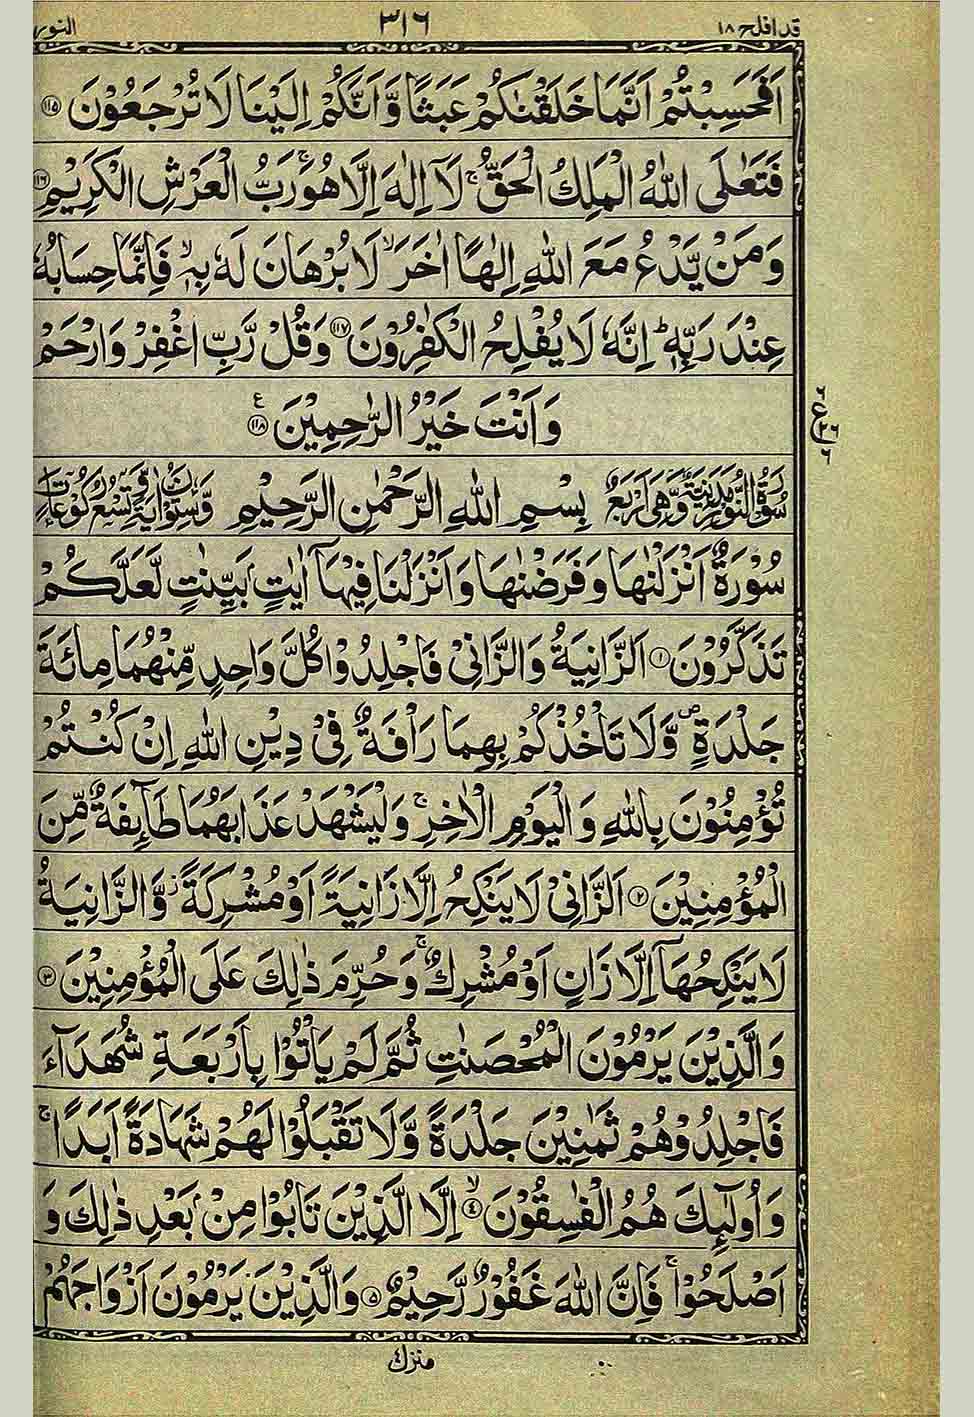 قد افلح ١٨ ٣١٦ النور
اَفَحَسِبْتُمْ اَنَّمَا خَلَقْنٰكُمْ عَبَثًا وَّاَنَّكُمْ اِلَيْنَا لَا تُرْجَعُوْنَ ١١٥
فَتَعٰلَى اللّٰهُ الْمَلِكُ الْحَقُّ ۚ لَآ اِلٰهَ اِلَّا هُوَ ۚ رَبُّ الْعَرْشِ الْكَرِيْمِ ١١٦
وَمَنْ يَّدْعُ مَعَ اللّٰهِ اِلٰهًا اٰخَرَ ۙ لَا بُرْهَانَ لَهٗ بِهٖ ۙ فَاِنَّمَا حِسَابُهٗ
عِنْدَ رَبِّهٖ ؕ اِنَّهٗ لَا يُفْلِحُ الْكٰفِرُوْنَ ١١٧ وَقُلْ رَّبِّ اغْفِرْ وَارْحَمْ
وَاَنْتَ خَيْرُ الرّٰحِمِيْنَ ١١٨ ع
٦ ع ٢٦ ٦
سُوْرَةُ النُّوْرِ مَدَنِيَّةٌ وَّهِيَ اَرْبَعٌ بِسْمِ اللّٰهِ الرَّحْمٰنِ الرَّحِيْمِ وَّسِتُّوْنَ اٰيَةً وَّتِسْعُ رُكُوْعَاتٍ
سُوْرَةٌ اَنْزَلْنٰهَا وَفَرَضْنٰهَا وَاَنْزَلْنَا فِيْهَآ اٰيٰتٍۭ بَيِّنٰتٍ لَّعَلَّكُمْ
تَذَكَّرُوْنَ ١ اَلزَّانِيَةُ وَالزَّانِيْ فَاجْلِدُوْا كُلَّ وَاحِدٍ مِّنْهُمَا مِائَةَ
جَلْدَةٍ ۪ وَّلَا تَاْخُذْكُمْ بِهِمَا رَاْفَةٌ فِيْ دِيْنِ اللّٰهِ اِنْ كُنْتُمْ
تُؤْمِنُوْنَ بِاللّٰهِ وَالْيَوْمِ الْاٰخِرِ ۚ وَلْيَشْهَدْ عَذَابَهُمَا طَآئِفَةٌ مِّنَ
الْمُؤْمِنِيْنَ ٢ اَلزَّانِيْ لَا يَنْكِحُ اِلَّا زَانِيَةً اَوْ مُشْرِكَةً ز وَّالزَّانِيَةُ
لَا يَنْكِحُهَآ اِلَّا زَانٍ اَوْ مُشْرِكٌ ۚ وَحُرِّمَ ذٰلِكَ عَلَى الْمُؤْمِنِيْنَ ٣
وَالَّذِيْنَ يَرْمُوْنَ الْمُحْصَنٰتِ ثُمَّ لَمْ يَاْتُوْا بِاَرْبَعَةِ شُهَدَآءَ
فَاجْلِدُوْهُمْ ثَمٰنِيْنَ جَلْدَةً وَّلَا تَقْبَلُوْا لَهُمْ شَهَادَةً اَبَدًا ۚ
وَاُولٰٓئِكَ هُمُ الْفٰسِقُوْنَ ۙ ٤ اِلَّا الَّذِيْنَ تَابُوْا مِنْۢ بَعْدِ ذٰلِكَ وَ
اَصْلَحُوْا ۚ فَاِنَّ اللّٰهَ غَفُوْرٌ رَّحِيْمٌ ٥ وَالَّذِيْنَ يَرْمُوْنَ اَزْوَاجَهُمْ
منزل ٤